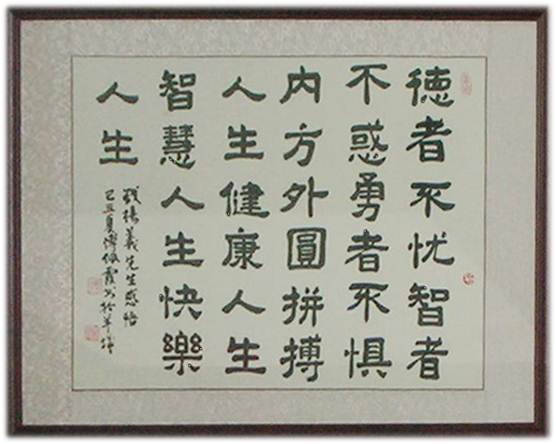 德者不忧智者
不惑勇者不惧
内方外圓拼搏
人生健康人生
智慧人生快樂
人生
義先生感悟
己丑夏